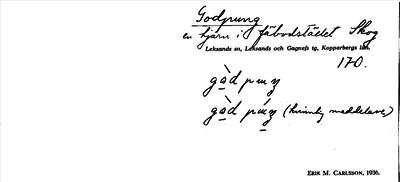 Godprung
en tjärn i fäbodstället Skog
Leksands sn, Leksands och Gagnefs tg, Kopparbergs län.
170.
gòd pruŋ
gòd (kvinnlig meddelare)
ERIK M. CARLSSON, 1936.